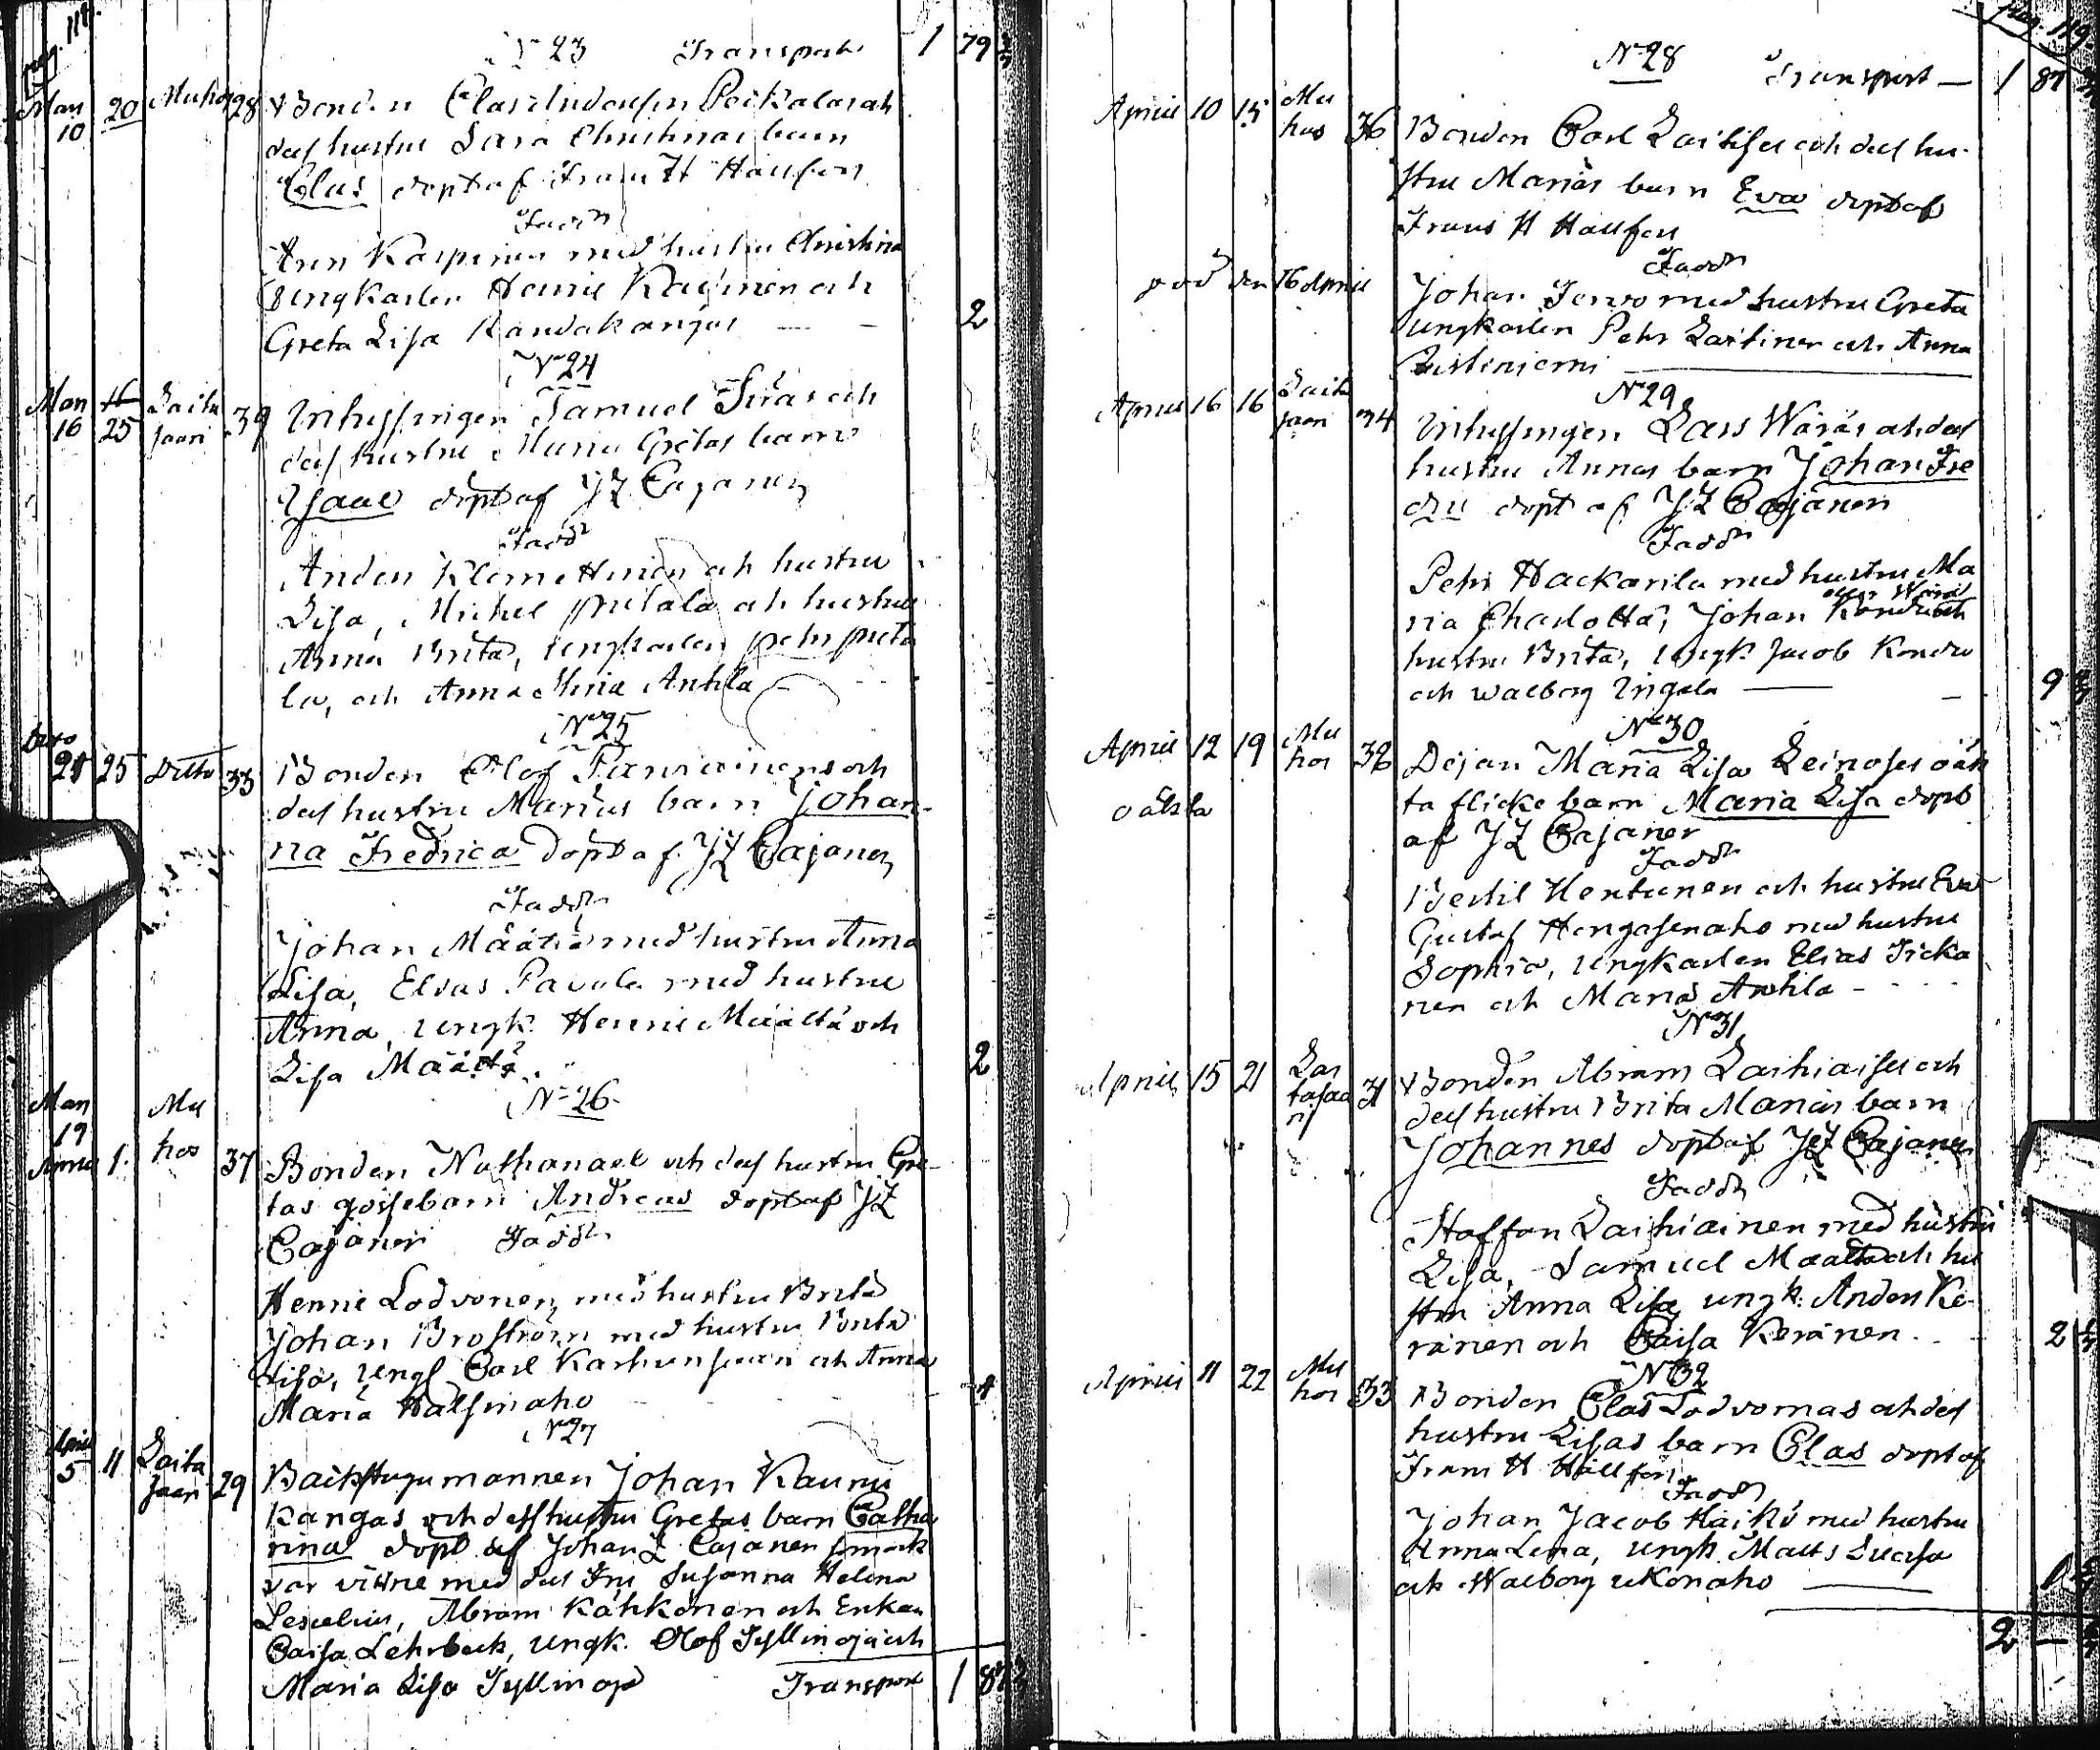 pag. 118.
N 23 Transport 1 79
Mars 10 20 Muhos 28 Bonden Clas Andersson Peikalas och
dess hustru Sara Christinas barn
Clas döpt af Frans H Hällfors
Fadd
med hustru Christina
Ungkarlen Henric och
Greta Lisa Kandakangas — 2
N 24
Mars 16 25 Laita saari 39 Inhysingen Samuel och
dess hustru Maria Gretas barn
Isaac döpt af JZ Cajaner
Fadd
Anders Klemettinen och hustru
Lisa, Michel Pietala och hustru
Anna Brita, Ungkarlen Pehr Pieta
la, och Anna Maria Anttila
No 25
Dito 21 25 Ditto 33 Bonden Olof och
dess hustru Marias barn Johan-
na Fredrica döpt af JZ Cajaner
Fadd
Johan Määttä med hustru Anna
Lisa, Elias Pavola med hustru
Anna, Ungk. Henric Määttä och
Lisa Määttä 2
N 26
Mars 19 1. Mu hos 37 Bonden Nathanael och dess hustru Gre-
tas gossebarn Andreas döpt af JZ
Cajaner Fadd
Henric Lodvonen med hustru Brita
Johan Broström med hustru Brita
Lisa, Ungk Carl och Anna
Maria Halsinaho
N 27
April 5 11 Laita saari 29 Backstugumannen Johan Kaunu
kangas och dess hustru Gretas barn Catha
rina döpt af Johan Z Cajaner
var vittne med dess Fru Susanna Helena
Lescelius, Abram Kähkönen och Enkan
Caisa Lehrbeck, Ungk. Olof Tyllinoja och
Maria Lisa Tyllinoja Transport 1 87
pag. 119.
No 28 Transport — 1 87
April 10 15 Mu hos 36 Bonden Carl Laitises och dess hu-
stru Marias barn Eva döpt af
Frans H Hällfors
Fadd
död den 16 April Johan Torvo med hustru Greta
Ungkarlen Pehr Laitinen och Anna
No 29
April 16 16 Laita saari 34 Inhysingen Lars Wäräs och dess
hustru Annas barn Johan Fre
dric döpt af JZ Cajanen
Fadd
Pehr Hackarila med hustru Ma
ria Charlotta, Johan Kondru och
hustru Brita, Ungk. Jacob Kondru
och Walborg Ingala — 9
No 30
April 12 19 Mu hos 38 Dejan Maria Lisa Leinoses oäk
oäkta ta flicke barn Maria Lisa döpt
af JZ Cajaner
Fadd
Bertil Hentunen och hustru Eva
Gustaf Hengasenaho med hustru
Sophia, Ungkarlen Elias Ticka
nen och Maria Anttila
No 31
April 15 21 Lai tasaa ri 31 Bonden Abram Laihiaises och
dess hustru Brita Marias barn
Johannes döpt af JZ Cajaner
Fadd
Staffan Laihiainen med hustru
Lisa, Samuel Määttä och hu
stru Anna Lisa ungk. Anders Ke-
ränen och Caisa Keränen. 2
No 32
April 11 22 Mu hos 33 Bonden Clas Lodvomas och dess
hustru Lisas barn Clas döpt af
Frans H Hällfors
Fadd
Johan Jacob Haikö med hustru
Anna Lena, Ungk Matts
och Walborg Ukonaho —
2 —